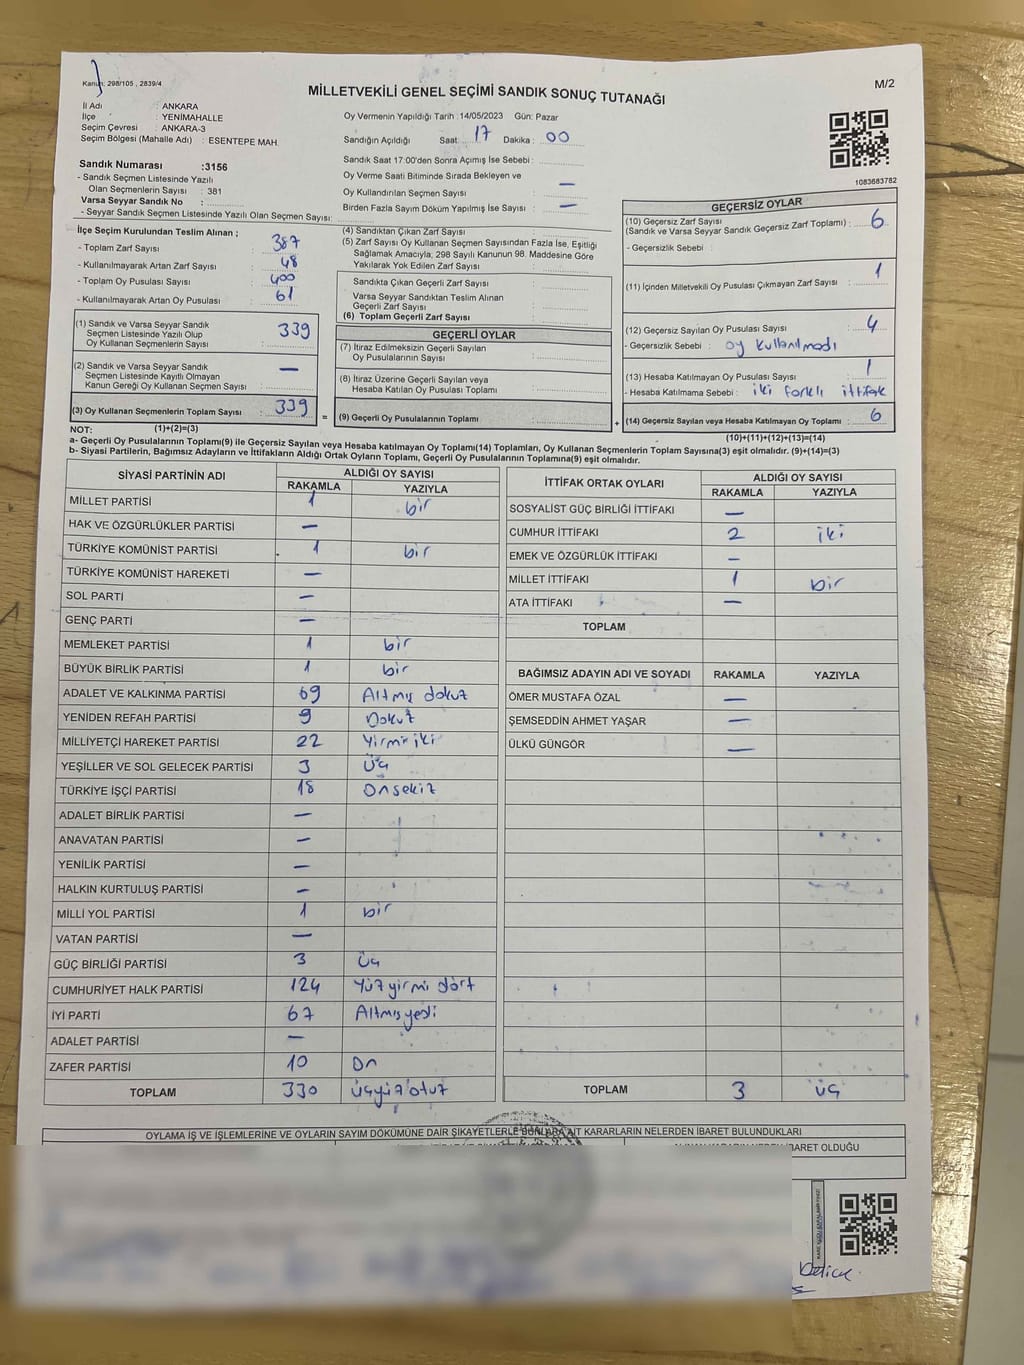 Kanun: 298/105 , 2839/4
M/2
MİLLETVEKİLİ GENEL SEÇİMİ SANDIK SONUÇ TUTANAĞI
İl Adı : ANKARA
İlçe : YENİMAHALLE
Seçim Çevresi : ANKARA-3
Seçim Bölgesi (Mahalle Adı) : ESENTEPE MAH.
Oy Vermenin Yapıldığı Tarih :14/05/2023 Gün: Pazar
Sandığın Açıldığı Saat: 17 Dakika : 00
Sandık Saat 17:00'den Sonra Açımış İse Sebebi :
Oy Verme Saati Bitiminde Sırada Bekleyen ve
Oy Kullandırılan Seçmen Sayısı : —
Birden Fazla Sayım Döküm Yapılmış İse Sayısı : —
1083683782
Sandık Numarası :3156
- Sandık Seçmen Listesinde Yazılı
Olan Seçmenlerin Sayısı : 381
Varsa Seyyar Sandık No :
- Seyyar Sandık Seçmen Listesinde Yazılı Olan Seçmen Sayısı:
İlçe Seçim Kurulundan Teslim Alınan ;
- Toplam Zarf Sayısı : 387
- Kullanılmayarak Artan Zarf Sayısı : 48
- Toplam Oy Pusulası Sayısı : 400
- Kullanılmayarak Artan Oy Pusulası : 61
(1) Sandık ve Varsa Seyyar Sandık
Seçmen Listesinde Yazılı Olup
Oy Kullanan Seçmenlerin Sayısı : 339
(2) Sandık ve Varsa Seyyar Sandık
Seçmen Listesinde Kayıtlı Olmayan
Kanun Gereği Oy Kullanan Seçmen Sayısı : —
(3) Oy Kullanan Seçmenlerin Toplam Sayısı : 339 =
(4) Sandıktan Çıkan Zarf Sayısı :
(5) Zarf Sayısı Oy Kullanan Seçmen Sayısından Fazla İse, Eşitliği
Sağlamak Amacıyla; 298 Sayılı Kanunun 98. Maddesine Göre
Yakılarak Yok Edilen Zarf Sayısı :
Sandıkta Çıkan Geçerli Zarf Sayısı :
Varsa Seyyar Sandıktan Teslim Alınan
Geçerli Zarf Sayısı :
(6) Toplam Geçerli Zarf Sayısı :
GEÇERLİ OYLAR
(7) İtiraz Edilmeksizin Geçerli Sayılan
Oy Pusulalarının Sayısı :
(8) İtiraz Üzerine Geçerli Sayılan veya
Hesaba Katılan Oy Pusulası Toplamı :
(9) Geçerli Oy Pusulalarının Toplamı : +
GEÇERSİZ OYLAR
(10) Geçersiz Zarf Sayısı
(Sandık ve Varsa Seyyar Sandık Geçersiz Zarf Toplamı) : 6
- Geçersizlik Sebebi :
(11) İçinden Milletvekili Oy Pusulası Çıkmayan Zarf Sayısı : 1
(12) Geçersiz Sayılan Oy Pusulası Sayısı : 4
- Geçersizlik Sebebi : oy kullanılmadı
(13) Hesaba Katılmayan Oy Pusulası Sayısı : 1
- Hesaba Katılmama Sebebi : iki farklı ittifak
(14) Geçersiz Sayılan veya Hesaba Katılmayan Oy Toplamı : 6
NOT: (1)+(2)=(3)
(10)+(11)+(12)+(13)=(14)
a- Geçerli Oy Pusulalarının Toplamı(9) ile Geçersiz Sayılan veya Hesaba katılmayan Oy Toplamı(14) Toplamları, Oy Kullanan Seçmenlerin Toplam Sayısına(3) eşit olmalıdır. (9)+(14)=(3)
b- Siyasi Partilerin, Bağımsız Adayların ve İttifakların Aldığı Ortak Oyların Toplamı, Geçerli Oy Pusulalarının Toplamına(9) eşit olmalıdır.
SİYASİ PARTİNİN ADI ALDIĞI OY SAYISI
RAKAMLA YAZIYLA
MİLLET PARTİSİ 1 bir
HAK VE ÖZGÜRLÜKLER PARTİSİ —
TÜRKİYE KOMÜNİST PARTİSİ 1 bir
TÜRKİYE KOMÜNİST HAREKETİ —
SOL PARTİ —
GENÇ PARTİ —
MEMLEKET PARTİSİ 1 bir
BÜYÜK BİRLİK PARTİSİ 1 bir
ADALET VE KALKINMA PARTİSİ 69 Altmış dokuz
YENİDEN REFAH PARTİSİ 9 Dokuz
MİLLİYETÇİ HAREKET PARTİSİ 22 Yirmi iki
YEŞİLLER VE SOL GELECEK PARTİSİ 3 Üç
TÜRKİYE İŞÇİ PARTİSİ 18 Onsekiz
ADALET BİRLİK PARTİSİ —
ANAVATAN PARTİSİ —
YENİLİK PARTİSİ —
HALKIN KURTULUŞ PARTİSİ —
MİLLİ YOL PARTİSİ 1 bir
VATAN PARTİSİ —
GÜÇ BİRLİĞİ PARTİSİ 3 Üç
CUMHURİYET HALK PARTİSİ 124 Yüzyirmi dört
İYİ PARTİ 67 Altmışyedi
ADALET PARTİSİ —
ZAFER PARTİSİ 10 On
TOPLAM 330 üçyüz otuz
İTTİFAK ORTAK OYLARI ALDIĞI OY SAYISI
RAKAMLA YAZIYLA
SOSYALİST GÜÇ BİRLİĞİ İTTİFAKI —
CUMHUR İTTİFAKI 2 iki
EMEK VE ÖZGÜRLÜK İTTİFAKI —
MİLLET İTTİFAKI 1 bir
ATA İTTİFAKI —
TOPLAM
BAĞIMSIZ ADAYIN ADI VE SOYADI RAKAMLA YAZIYLA
ÖMER MUSTAFA ÖZAL —
ŞEMSEDDİN AHMET YAŞAR —
ÜLKÜ GÜNGÖR —
TOPLAM 3 üç
OYLAMA İŞ VE İŞLEMLERİNE VE OYLARIN SAYIM DÖKÜMÜNE DAİR ŞİKAYETLERLE BUNLARA AİT KARARLARIN NELERDEN İBARET BULUNDUKLARI
İBARET OLDUĞU